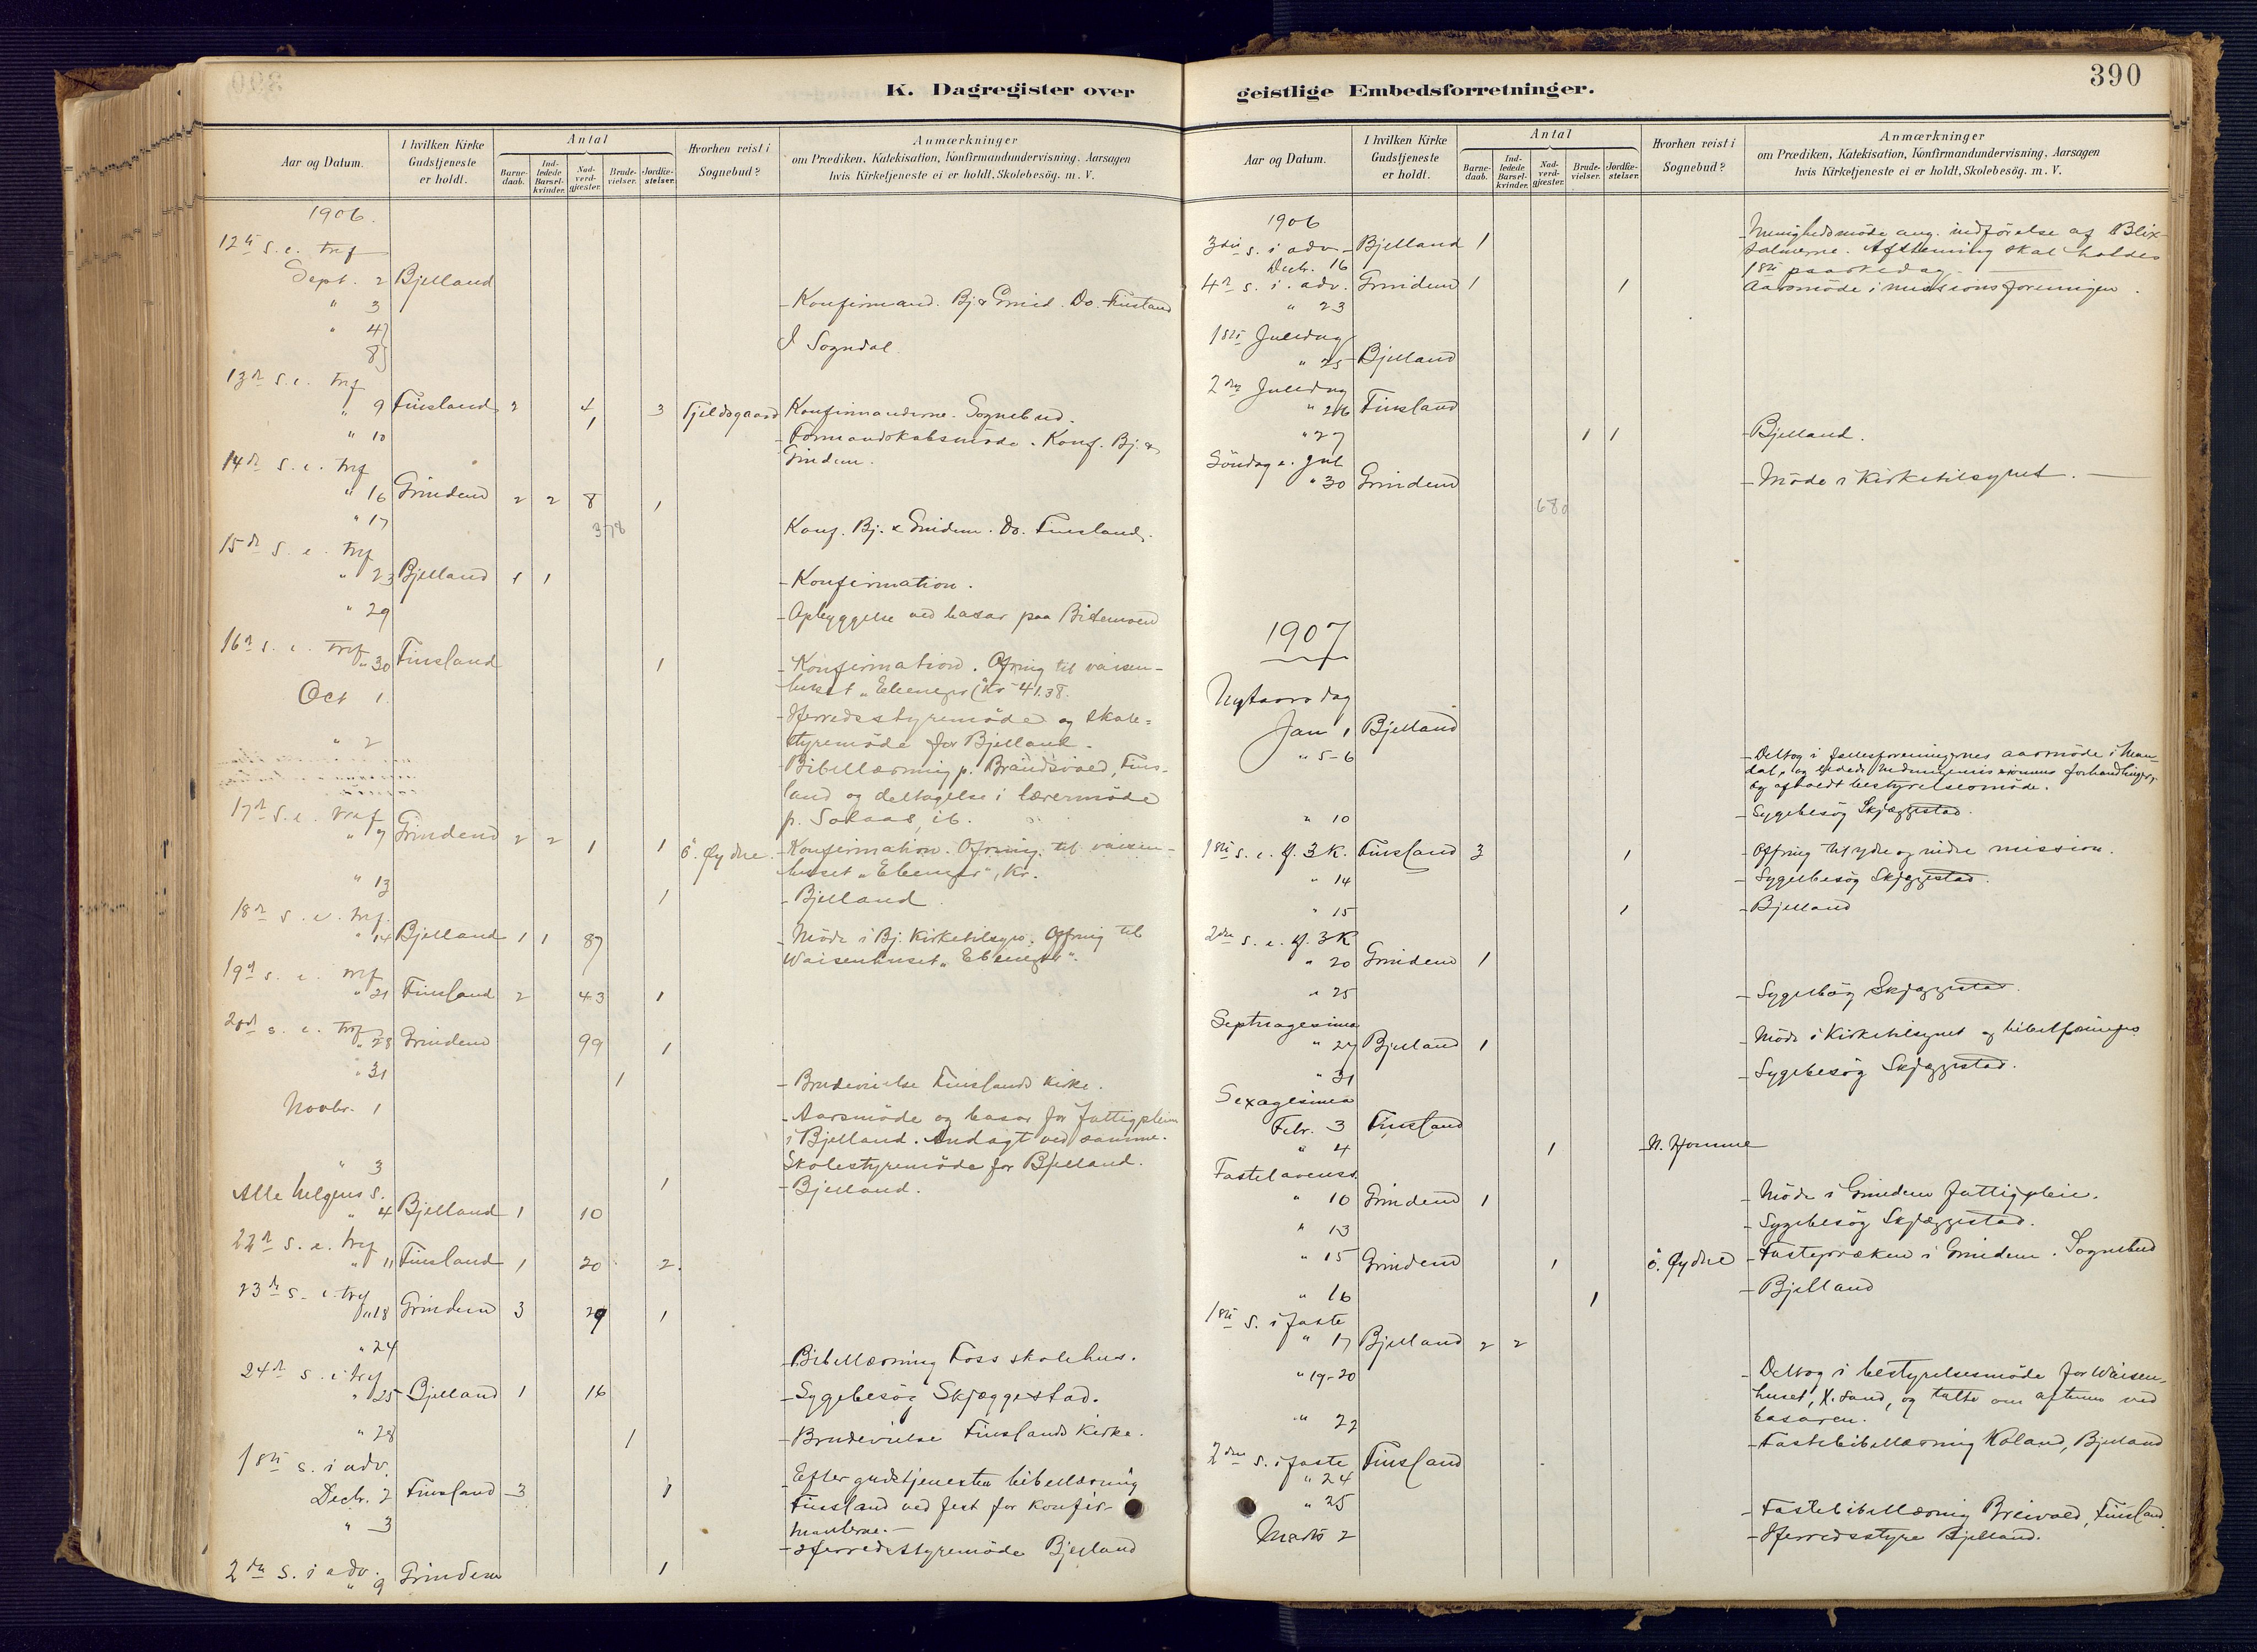 K. Dagregister over
Aar og Datum.
I hvilken Kirke Gudstjeneste er holdt.
Antal
Barne-daab.
Ind-ledede Barsel-kvinder.
Nad-verd-gjester.
Brude-vielser.
Jordfæ-stelser.
Hvorhen reist i Sognebud?
Anmærkninger
om Prædiken, Katekisation, Konfirmandundervisning, Aarsagen
hvis Kirketjeneste ei er holdt, Skolebesøg. m. V.
1906.
12te S. e. tref
Sept. 2 Bjelland
" 3 - Konfirmand. Bj & Grind. Do. Finsland
" 4
8 I Sogndal
13de S. e. tref
" 9 Finsland 2 4 3 Fjeldsgaard Konfirmanderne. Sognebud.
" 10 1 - Formandskabsmöde. Konf. Bj. &
Grindem.
14de S. e. tref
" 16 Grindem 2 2 8 1
" 17 378 Konf. Bj. & Grindem. Do. Finsland.
15de S. e. tref
" 23 Bjelland 1 1 - Konfirmation.
" 29 - Opbyggelse ved basar paa
16de S. e. tref
" 30 Finsland 1 - Konfirmation. Ofring til vaisen-
huset "Ebenezer" (Kr 41.38.
Oct 1 - Herredsstyremöde og skole-
styremöde for Bjelland.
" 2 - Bibellæsning p. Brandsvold, Fins-
land og deltagelse i lærermöde
p. Solaas, ib.
17de S. e. tref
" 7 Grindem 2 2 1 1 ö. Øydne. - Konfirmation. Ofring til vaisen-
huset "Ebenezer", Kr.
" 13 1 - Bjelland
18de S. e. tref.
" 14 Bjelland 1 1 87 - Möde i Bj. Kirketilsyn. Offring til
Waisenhuset "Ebenezer".
19de S. e. tref
" 21 Finsland 2 43 1
20de S. e. tref
" 28 Grindem 99 1
" 31 1 - Brudevielse Finslands Kirke.
Novbr. 1 - Aarsmöde og basar for fattigpleien
i Bjelland. Andagt ved samme.
Skolestyremöde for Bjelland.
" 3 1 - Bjelland.
Alle helgens S.
" 4 Bjelland 1 10
22de S. e. tref
" 11 Finsland 1 20 2.
23de S. e. tref
" 18 Grindem 3 29 1
" 24 - Bibellæsning Foss skolehus.
24de S. e. tref
" 25 Bjelland 1 16 - Sygebesög Skjæggestad.
" 28 1 - Brudevielse Finslands Kirke.
1ste S. i adv.
Decbr. 2 Finsland 3 1 Efter gudstjenesten bibellæsning
Finsland ved fest for konfir-
manterne.
" 3 - Herredsstyremöde Bjelland
2den S. i adv.
" 9 Grindem 1
390
geistlige Embedsforretninger.
Aar og Datum.
I hvilken Kirke Gudstjeneste er holdt.
Antal
Barne-daab.
Ind-ledede Barsel-kvinder.
Nad-verd-gjester.
Brude-vielser.
Jordfæ-stelser.
Hvorhen reist i Sognebud?
Anmærkninger
om Prædiken, Katekisation, Konfirmandundervisning, Aarsagen
hvis Kirketjeneste ei er holdt, Skolebesøg. m. V.
1906
3die S. i adv. - Bjelland 1 - Menighedsmöde ang. indförelse af Blix
Decbr. 16 salmerne. Afstemning skal holdes
1ste paaskedag.
4de S. i. adv. Grindem 1 1 Aarsmöde i missionsforeningen.
" 23
1ste Juledag
" 25 Bjelland
2den Juledag
" 26 Finsland
" 27 1 1 - Bjelland.
Söndag e. Jul
" 30 Grindem - Möde i Kirketilsynet.
680
1907
Nytaarsdag
Jan 1 Bjelland
" 5-6 - Deltog i fællesforeningernes aarsmöde i Man-
dal, og ledede forhandlinger,
og afholdt bestyrelsesmöde.
" 10 - Sygebesög Skjæggestad.
1ste S. e. H. 3 K. Finsland 3 1 - Offring til ydre og indre mission.
" 14 - Sygebesög Skjæggestad.
" 15 1 - Bjelland
2den S. e. H. 3 K
" 20 Grindem 1
" 25 - Sygebesög Skjæggestad.
Septuagesima
" 27 Bjelland 1 - Möde i Kirketilsynet og
" 31 - Sygebesög Skjæggestad.
Sexagesima
Febr. 3 Finsland
" 4 1 N. Homme
Fastelavenss.
" 10 Grindem 1 - Möde i Grindem fattigpleie.
" 13 - Sygebesög Skjæggestad.
" 15 Grindem 1 ö. Øydne - Fastepræken i Grindem. Sognebud
" 16 1 - Bjelland
1ste S. i faste
" 17 Bjelland 2 2
" 19-20 - Deltog i bestyrelsesmöde for Waisen-
huset, X.sand, og talte om aftenen ved
basaren.
" 22 - Fastebibellæsning Koland, Bjelland
2den S. i faste Finsland
" 24
" 25 - Fastebibellæsning Breivold, Finsland.
Marts 2 - Herredsstyre Bjelland.